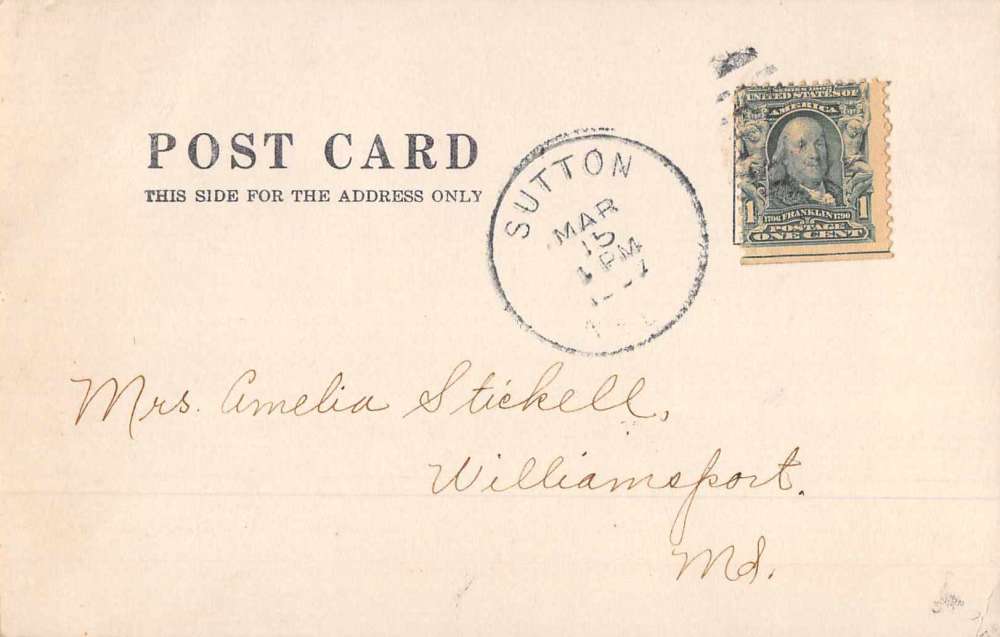 POST CARD
THIS SIDE FOR THE ADDRESS ONLY
SUTTON
MAR
15
PM
SERIES 1902
UNITED STATES OF
AMERICA
1 1
1706 FRANKLIN 1790
POSTAGE
ONE CENT
Mrs. Amelia Stickell,
Williamsport.
Md.